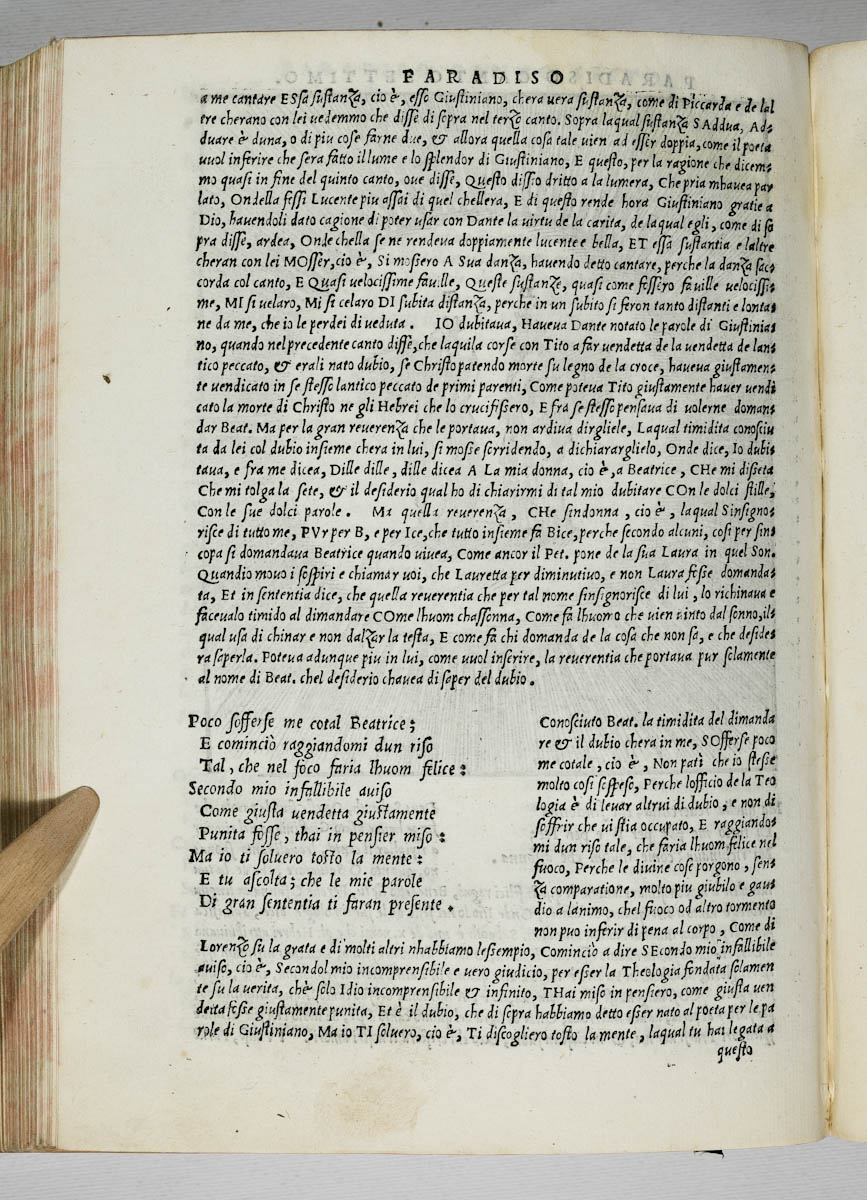 PARADISO
a me cantare ESsa sustanza, cio è, esso Giustiniano, chera uera sustanza, come di Piccarda e de lal
tre cherano con lei uedemmo che disse di sopra nel terzo canto. Sopra laqual sustanza SAddua, Ad-
duare è duna, o di piu cose farne due, & allora quella cosa tale uien ad esser doppia, come il poeta
uuol inferire che sera fatto il lume e lo splendor di Giustiniano, E questo, per la ragione che dicem-
mo quasi in fine del quinto canto, oue disse, Questo dissio dritto a la lumera, Che pria mhauea par
lato, Ondella fessi Lucente piu assai di quel chellera, E di questo rende hora Giustiniano gratie a
Dio, hauendoli dato cagione di poter usar con Dante la uirtu de la carita, de laqual egli, come di so
pra disse, ardea, Onde chella se ne rendeua doppiamente lucente e bella, ET essa sustantia e laltre
cheran con lei MOsser, cio è, Si mossero A Sua danza, hauendo detto cantare, perche la danza sac-
corda col canto, E Quasi uelocissime fauille, Queste sustanze, quasi come fessero fauille uelocissi-
me, MI si uelaro, Mi si celaro DI subita distanza, perche in un subito si feron tanto distanti e lonta-
ne da me, che io le perdei di ueduta. IO dubitaua, Haueua Dante notato le parole di Giustinia-
no, quando nel precedente canto disse, che laquila corse con Tito a far uendetta de la uendetta de lan-
tico peccato, & erali nato dubio, se Christo patendo morte su legno de la croce, haueua giustamen-
te uendicato in se stesso lantico peccato de primi parenti, Come poteua Tito giustamente hauer uendi
cato la morte di Christo ne gli Hebrei che lo crucifissero, E fra se stesso pensaua di uolerne doman-
dar Beat. Ma per la gran reuerenza che le portaua, non ardiua dirgliele, Laqual timidita conosciu
ta da lei col dubio insieme chera in lui, si mosse sorridendo, a dichiarargliélo, Onde dice, Io dubi-
taua, e fra me dicea, Dille dille, dille dicea A La mia donna, cio è, a Beatrice, CHe mi disseta
Che mi tolga la sete, & il desiderio qual ho di chiarirmi di tal mio dubitare COn le dolci stille,
Con le sue dolci parole. Ma quella reuerenza, CHe sindonna, cio è, laqual Sinsigno-
risce di tutto me, PVr per B, e per Ice, che tutto insieme fa Bice, perche secondo alcuni, cosi per sin-
copa si domandaua Beatrice quando uiuea, Come ancor il Pet. pone de la sua Laura in quel Son.
Quandio mouo i sospiri e chiamar uoi, che Lauretta per diminutiuo, e non Laura fesse domanda-
ta, Et in sententia dice, che quella reuerentia che per tal nome sinsignorisce di lui, lo richinaua e
faceualo timido al dimandare COme lhuom chassonna, Come fa lhuomo che uien uinto dal sonno, il-
qual usa di chinar e non dalzar la testa, E come fa chi domanda de la cosa che non sa, e che deside-
ra saperla. Poteua adunque piu in lui, come uuol inferire, la reuerentia che portaua pur solamente
al nome di Beat. chel desiderio chaueua di saper del dubio.
Poco sofferse me cotal Beatrice;
E cominciò raggiandomi dun riso
Tal, che nel foco faria lhuom felice:
Secondo mio infallibile auiso
Come giusta uendetta giustamente
Punita fosse, thai in pensier miso:
Ma io ti soluero tosto la mente:
E tu ascolta; che le mie parole
Di gran sententia ti faran presente.
Conosciuto Beat. la timidita del dimanda
re & il dubio chera in me, SOfferse poco
me cotale, cio è, Non patì che io stesse
molto cosi sospeso, Perche lofficio de la Teo
logia è di leuar altrui di dubio, e non di
soffrir che ui stia occupato, E raggiando-
mi dun riso tale, che faria lhuom felice nel
fuoco, Perche le diuine cose porgono, sen-
za comparatione, molto piu giubilo e gau-
dio a lanimo, chel fuoco od altro tormento
non puo inferir di pena al corpo, Come di
Lorenzo su la grata e di molti altri nhabbiamo lessempio, Cominciò a dire SEcondo mio infallibile
auiso, cio è, Secondol mio incomprensibile e uero giudicio, per esser la Theologia fondata solamen
te su la uerita, chè solo Idio incomprensibile & infinito, THai miso in pensiero, come giusta uen
detta fesse giustamente punita, Et è il dubio, che di sopra habbiamo detto esser nato al poeta per le pa
role di Giustiniano, Ma io TI soluero, cio è, Ti discogliero tosto la mente, laqual tu hai legata a
questo